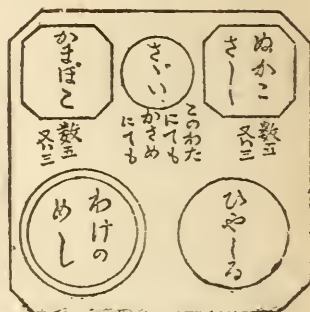 ぬかこ
さしみ
数五
又ハ三
さゞい
このわた
にても
かさめ
にても
かまぼこ
数五
又ハ三
ひやしる
わけの
めし